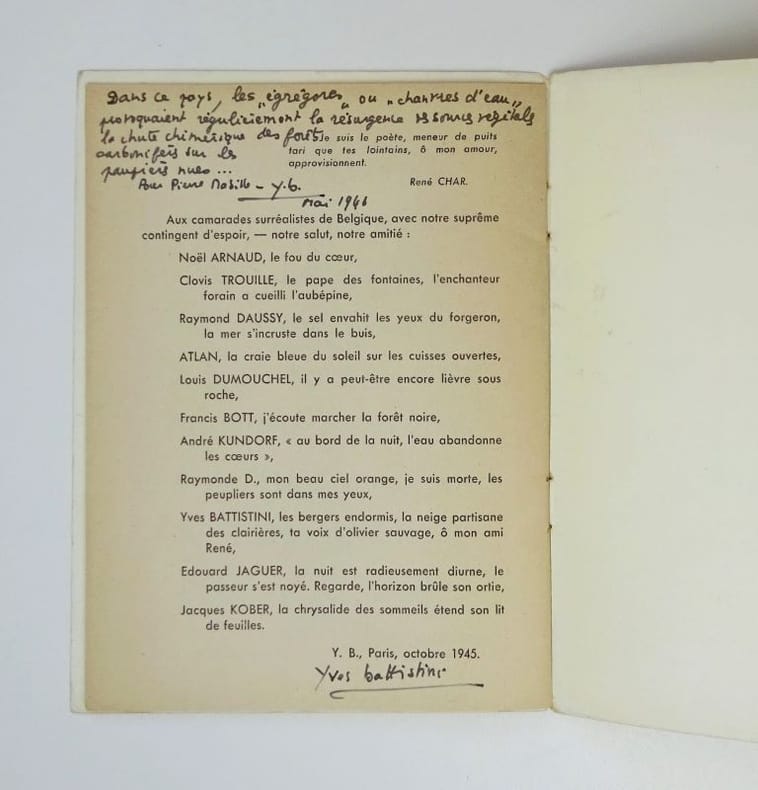 Dans ce pays, les „égrégores„ ou „chanvres d'eau„
provoquaient régulièrement la résurgence des sources végétales
la chute chimérique des forêts
carbonifères sur les
paupières nues...
Pour Pierre Mabille – Y.B.
Mai 1946
Je suis le poète, meneur de puits
tari que tes lointains, ô mon amour,
approvisionnent.
René CHAR.
Aux camarades surréalistes de Belgique, avec notre suprême
contingent d'espoir, — notre salut, notre amitié :
Noël ARNAUD, le fou du cœur,
Clovis TROUILLE, le pape des fontaines, l'enchanteur
forain a cueilli l'aubépine,
Raymond DAUSSY, le sel envahit les yeux du forgeron,
la mer s'incruste dans le buis,
ATLAN, la craie bleue du soleil sur les cuisses ouvertes,
Louis DUMOUCHEL, il y a peut-être encore lièvre sous
roche,
Francis BOTT, j'écoute marcher la forêt noire,
André KUNDORF, « au bord de la nuit, l'eau abandonne
les cœurs »,
Raymonde D., mon beau ciel orange, je suis morte, les
peupliers sont dans mes yeux,
Yves BATTISTINI, les bergers endormis, la neige partisane
des clairières, ta voix d'olivier sauvage, ô mon ami
René,
Edouard JAGUER, la nuit est radieusement diurne, le
passeur s'est noyé. Regarde, l'horizon brûle son ortie,
Jacques KOBER, la chrysalide des sommeils étend son lit
de feuilles.
Y. B., Paris, octobre 1945.
Yves battistini